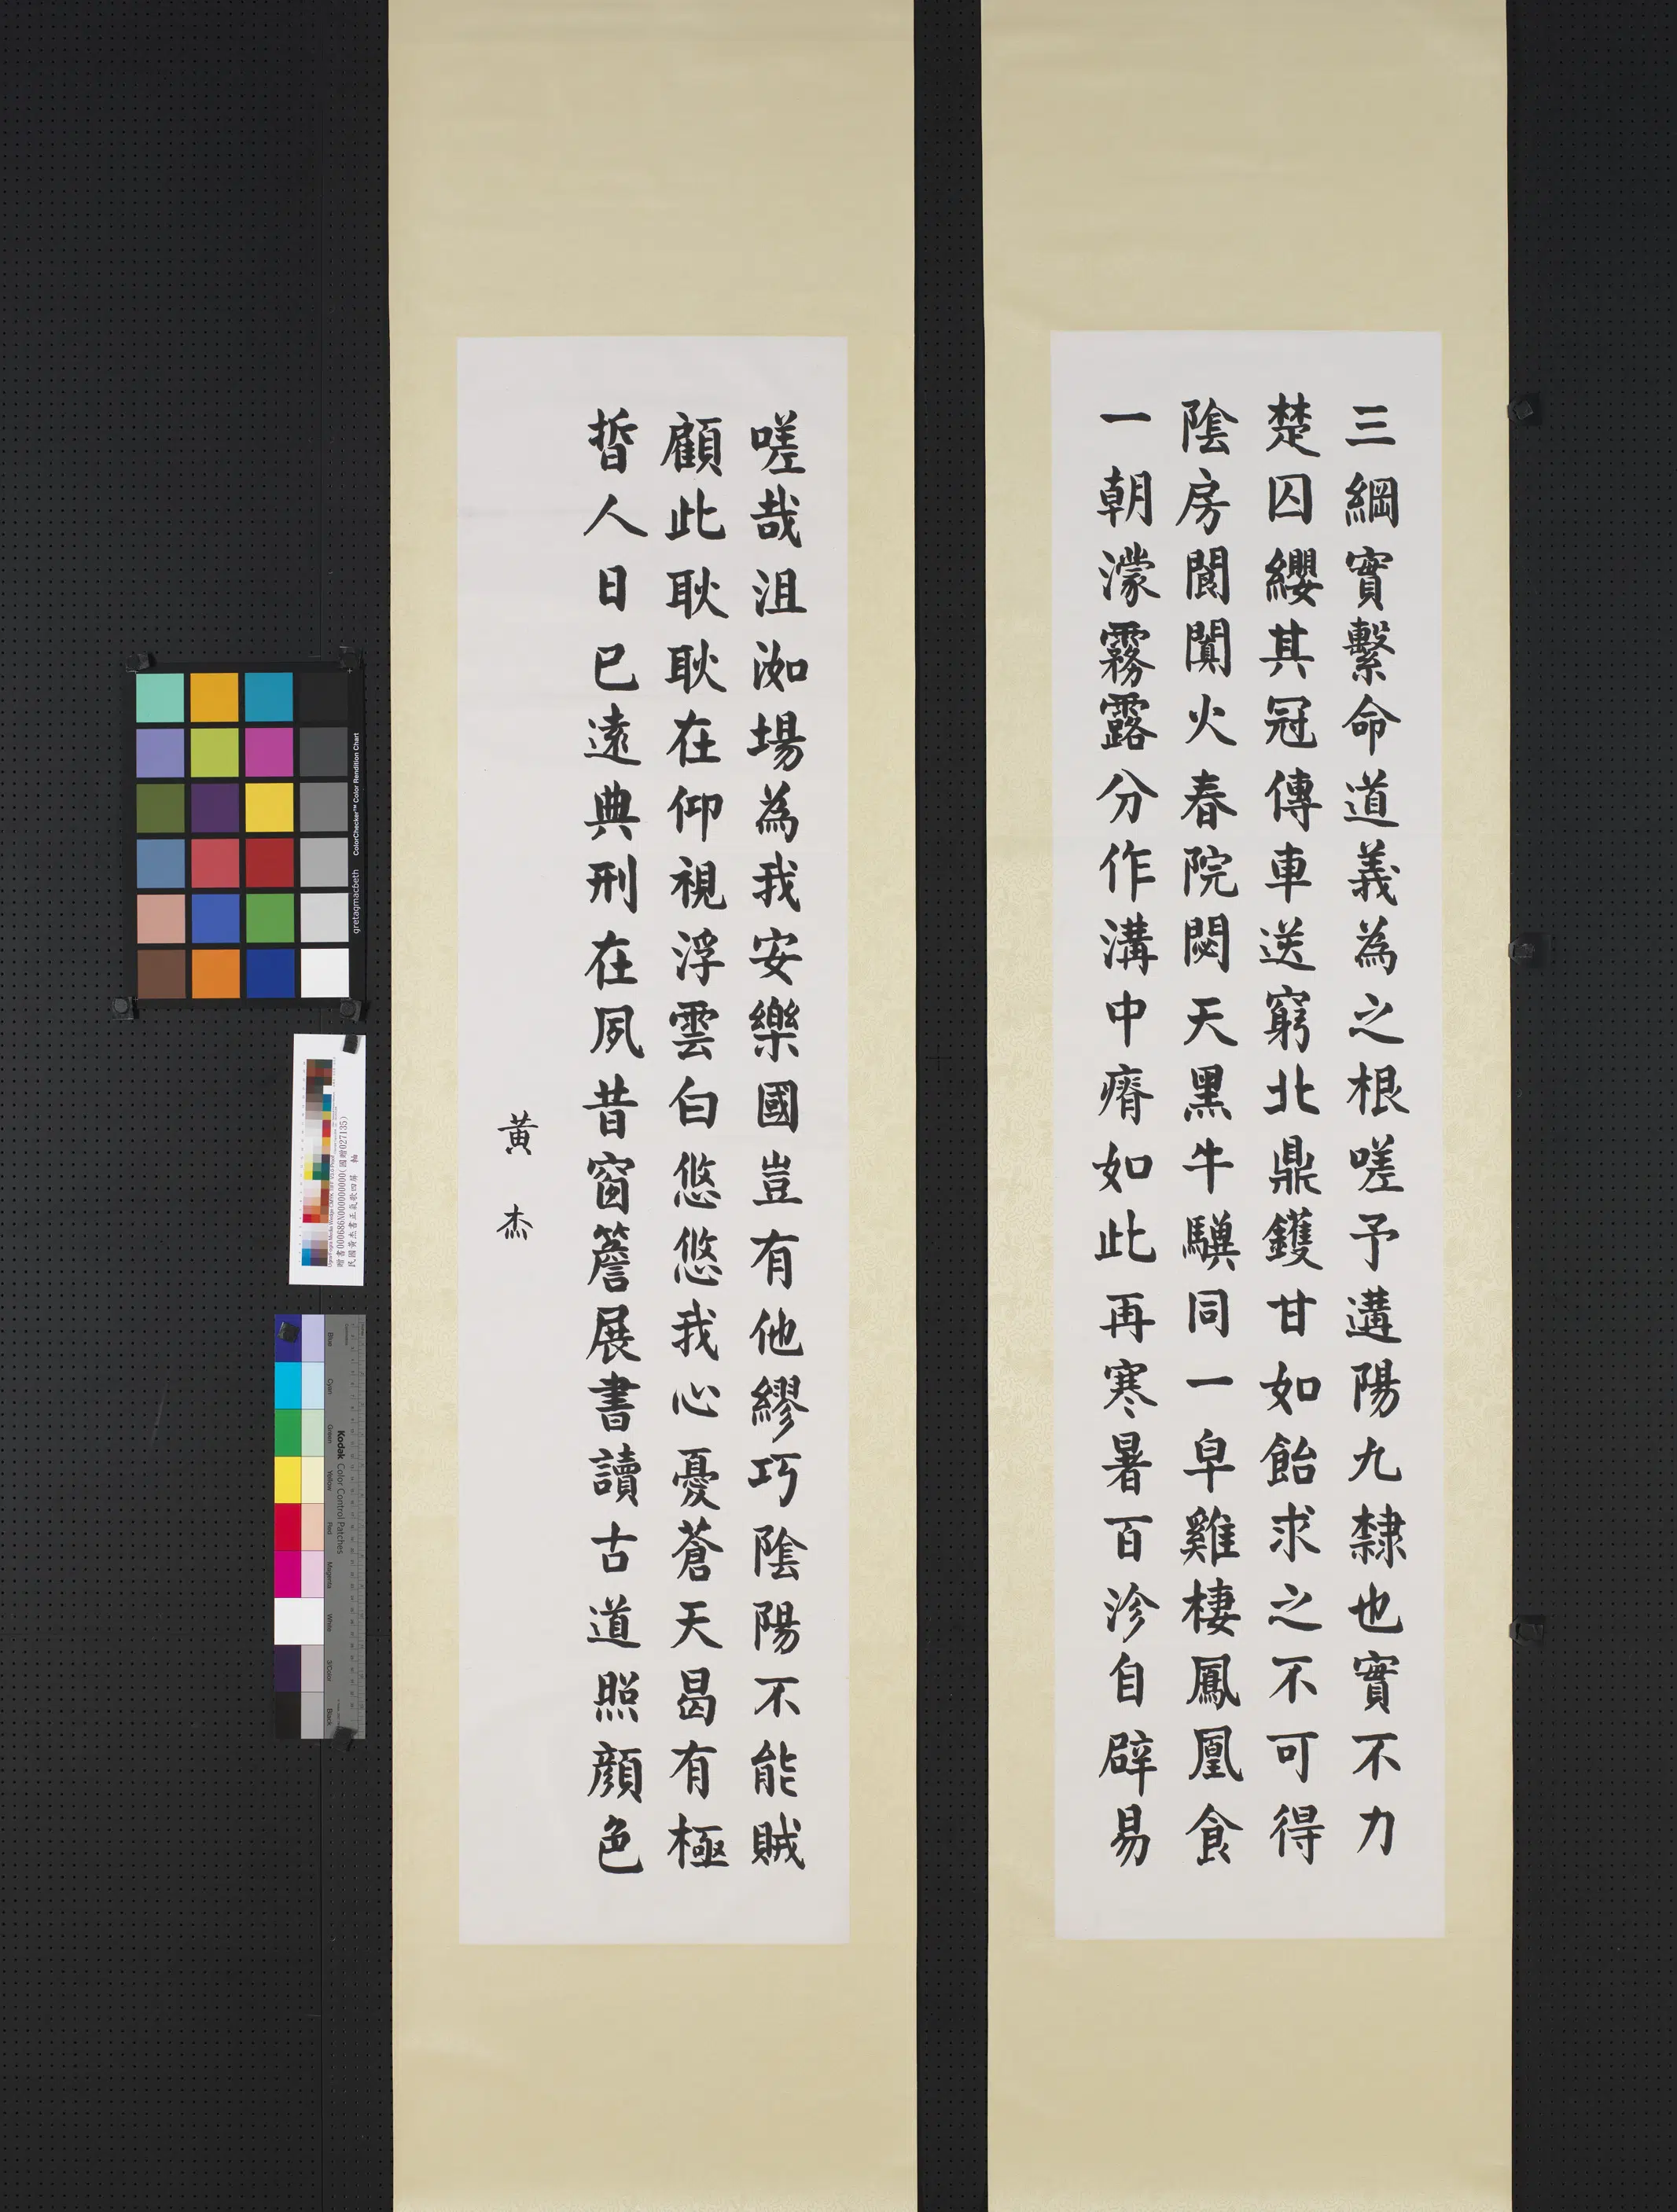 三綱實繫命道義為之根嗟予遘陽九隸也實不力
楚囚纓其冠傳車送窮北鼎鑊甘如飴求之不可得
陰房闃闃火春院閟天黑牛驥同一皁雞棲鳳凰食
一朝濛霧露分作溝中瘠如此再寒暑百沴自辟易
嗟哉沮洳場為我安樂國豈有他繆巧陰陽不能賊
顧此耿耿在仰視浮雲白悠悠我心憂蒼天曷有極
哲人日已遠典刑在夙昔窗簷展書讀古道照顏色
黃杰
ColorChecker™ Color Rendition Chart
gretagmacbeth
贈書000686N000000000(國贈027135)
民國黃杰書正氣歌四屏 軸
Kodak Color Control Patches
Blue
Cyan
Green
Yellow
Red
Magenta
White
3/Color
Black